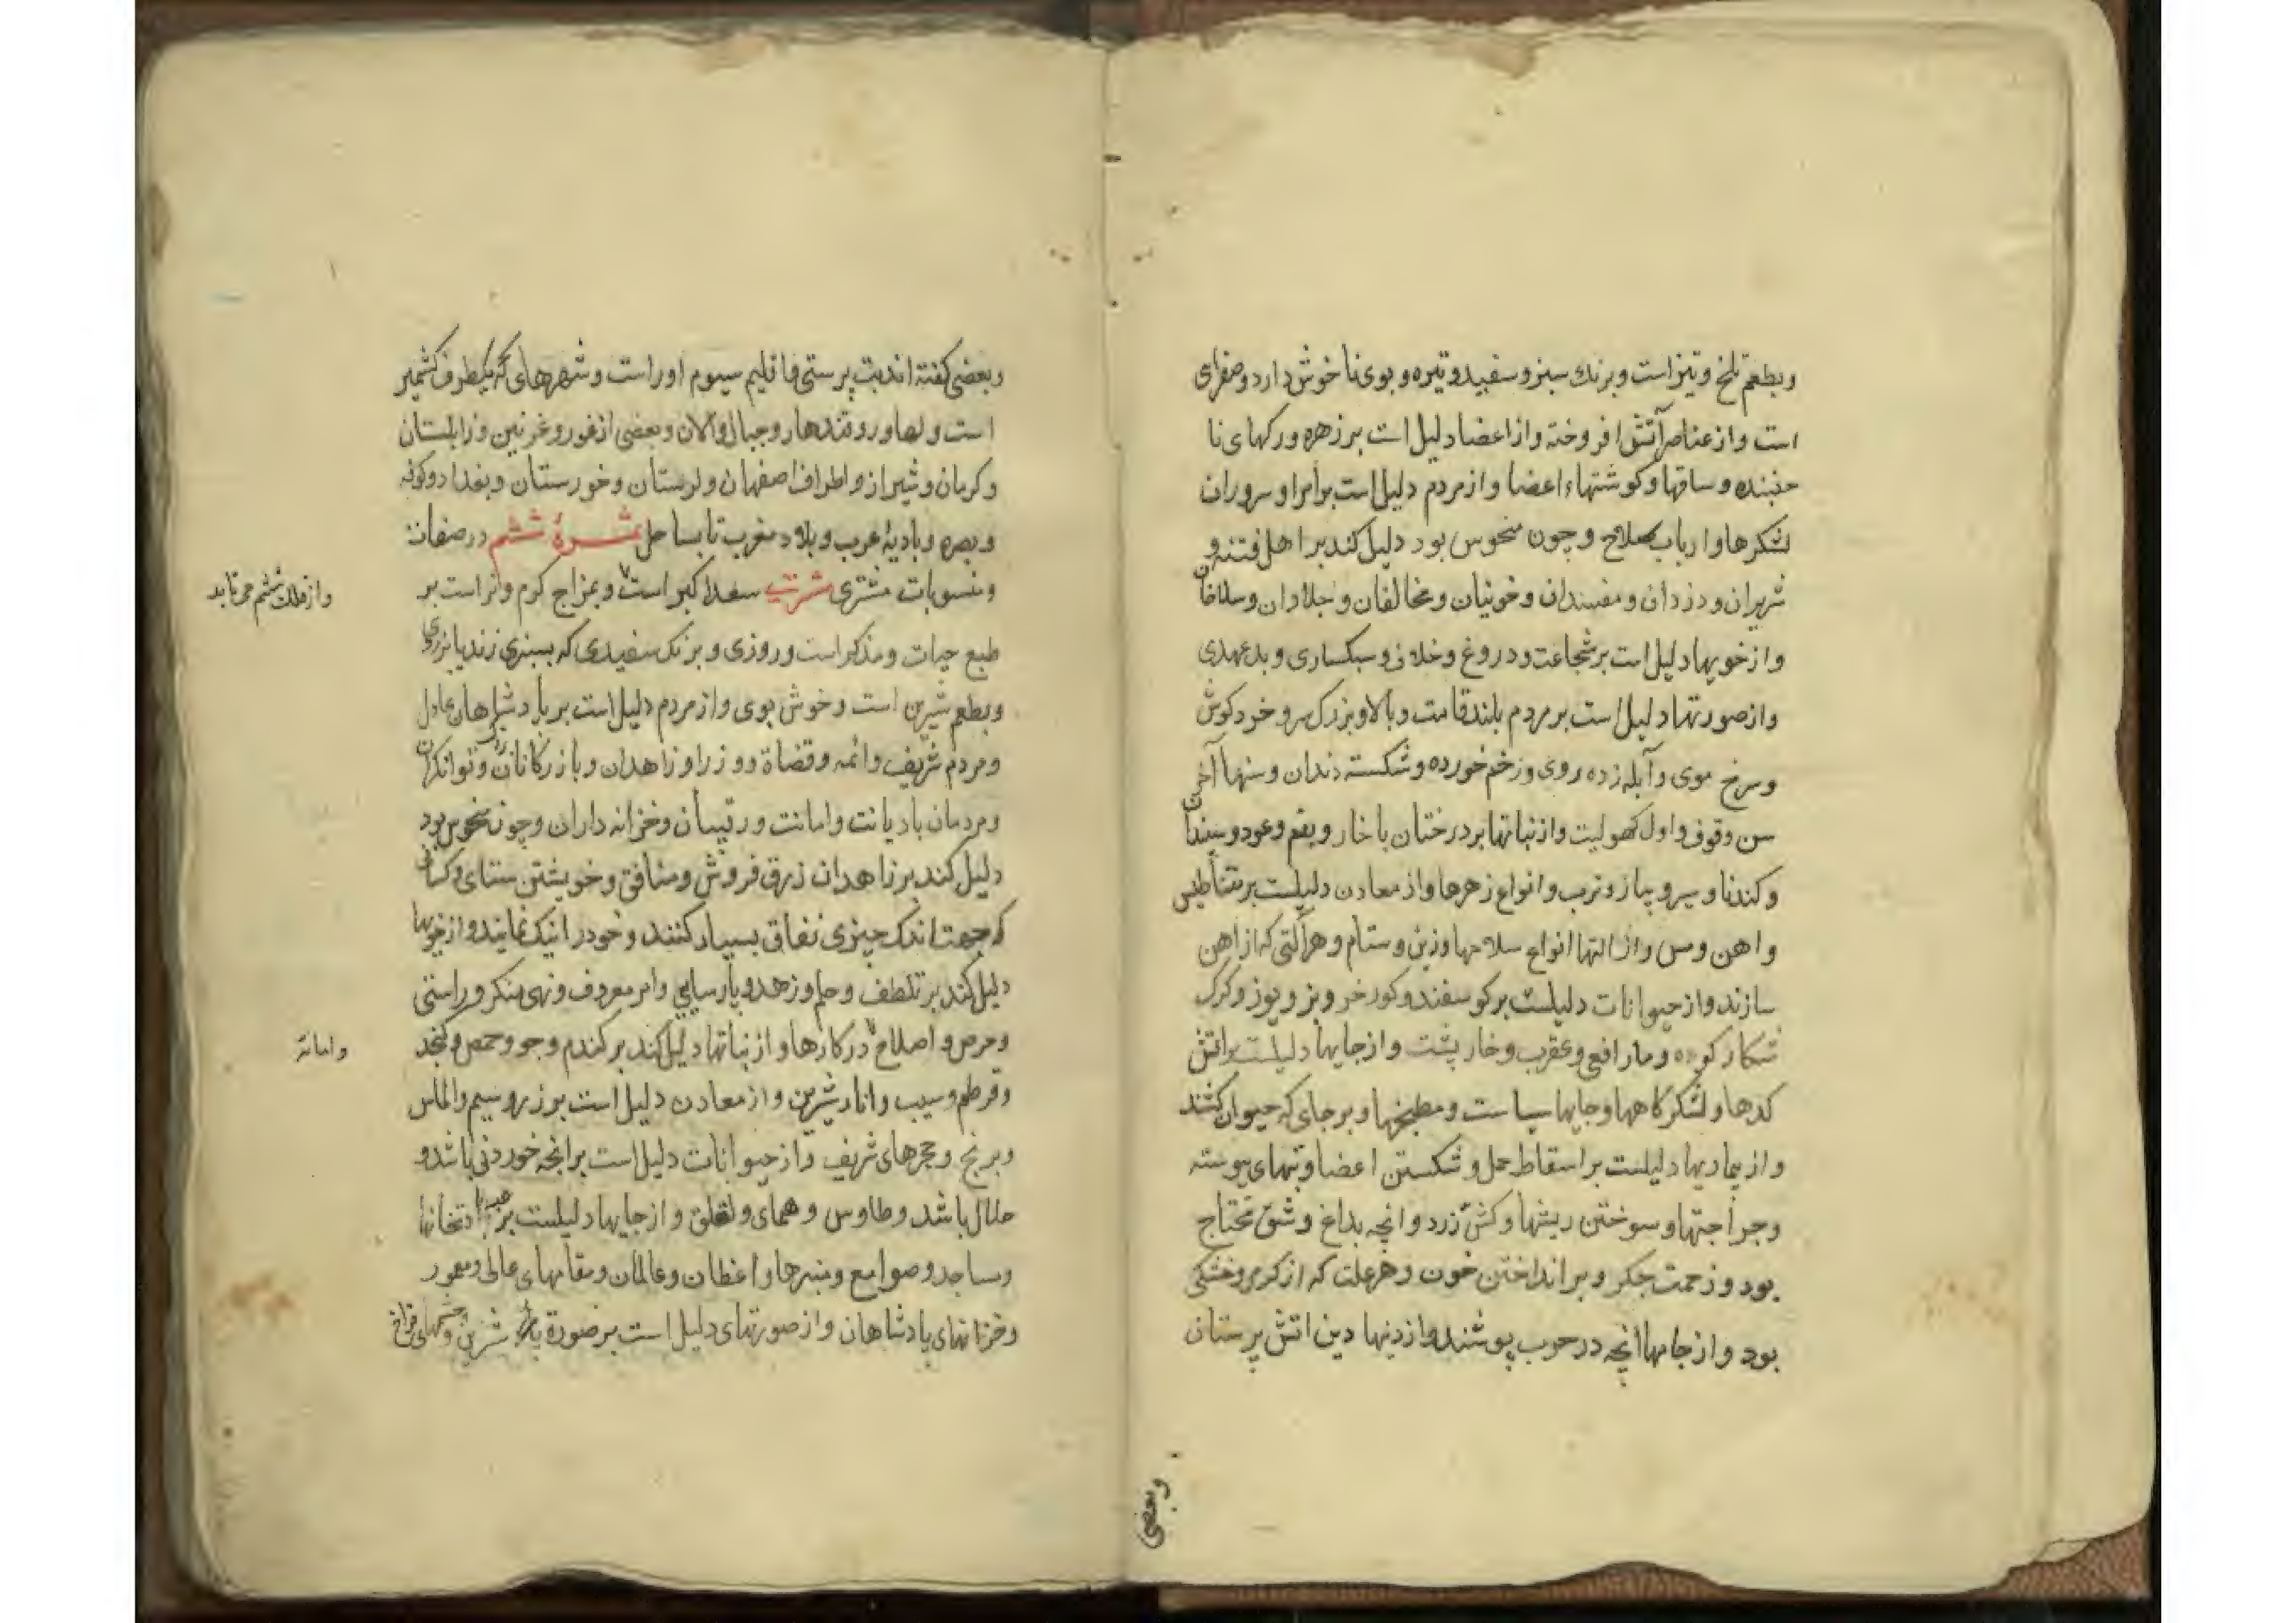 وبطعم تلخ وتیز است وبرنك سبز وسفید وتیره وبوی نا خوش دارد وصفرای
است واز عناصر آتش افروخته واز اعضا دلیل است بر زهره ورکهای نا
جنبنده وساقها وکوشتهاء اعضا واز مردم دلیل است بر امرا وسروران
لشکرها وارباب صلاح وچون منحوس بود دلیل کند بر اهل فتنه و
شریران ودزدان ومفسدان وخونیان ومخالفان وجلادان وسلاخان
واز خویها دلیل است بر شجاعت ودروغ وخلافی وسبکساری وبد عهدی
واز صورتها دلیل است بر مردم بلند قامت وبالا وبزرك سر وخرد کوش
وسرخ موی وآبله زده روی وزخم خورده وشکسته دندان وسنها آخر
سن وقوف واول کهولیت واز نباتها بر درختان با خار وبقم وعود وسپندان
وکندنا وسیر وپیاز وترب وانواع زهرها واز معادن دلیلست بر مقناطیس
واهن ومس واز التها انواع سلاحها وزین وستام وهر آلتی که از اهن
سازند واز حیوانات دلیلست بر کوسفند وکورخر وبز ویوز وکرك
شکار کرده ومار افعی وعقرب وخار پشت واز جایها دلیلست بر اتش
کدها ولشکرکاهها وجایها سیاست ومطبخها وبر جای که حیوان کشند
واز بیماریها دلیلست بر اسقاط حمل وشکستن اعضا وتبهای پیوسته
وجراحتها وسوختن ریشها وکش زرد وانچه بداغ وشق محتاج
بود وزحمت جکر وبر انداختن خون وهر علت که از کرمی وخشکی
بود واز جامها انچه در حرب پوشند واز دینها دین اتش پرستان
وبعضی
وبعضی کفته اند بت پرستی واقلیم سیوم اوراست وشهرهای که یکطرف کشمیر
است ولهاور وقندهار وجبال والان وبعضی از غور وغزنین وزابلستان
وکرمان وشیراز واطراف اصفهان ولرستان وخورستان وبغداد وکوفه
وبصره وبادیهٔ عرب وبلاد مغرب تا بساحل ثمرهٔ ششم در صفات
ومنسوبات مشتری مشتری سعد اکبر است وبمزاج کرم وتر است بر
واز فلك ششم می تابد
طبع حیات ومذکر است وروزی وبرنك سفیدی که بسبزی زند یا بزردی
وبطعم شیرین است وخوش بوی واز مردم دلیل است بر پادشاهان عادل
ومردم شریف وائمه وقضاة ووزرا وزاهدان وبازرکانان وتوانکران
ومردمان با دیانت وامانت ورئیسان وخزانه داران وچون منحوس بود
دلیل کند بر زاهدان زرق فروش ومنافق وخویشتن ستای وکسانی
که جهت اندك چیزی نفاق بسیار کنند وخود را نیك نمایند واز خویها
دلیل کند بر تلطف وحلم وزهد وپارسایی وامر معروف ونهی منکر وراستی
وحرص واصلاح در کارها واز نباتها دلیل کند بر کندم وجو وحمص وکنجد
وامانة
وقرطم وسیب وانار شیرین واز معادن دلیل است بر زر وسیم والماس
وبرنج وحجرهای شریف واز حیوانات دلیل است بر انچه خوردنی باشد و
حلال باشد وطاوس وهمای ولقلق واز جایها دلیلست بر عبادتخانها
ومساجد وصوامع ومنبرها واعظان وعالمان ومقامهای عالی ومعمور
وخزانهای پادشاهان واز صورتهای دلیل است بر صورة شیرین وچشمهای فراخ